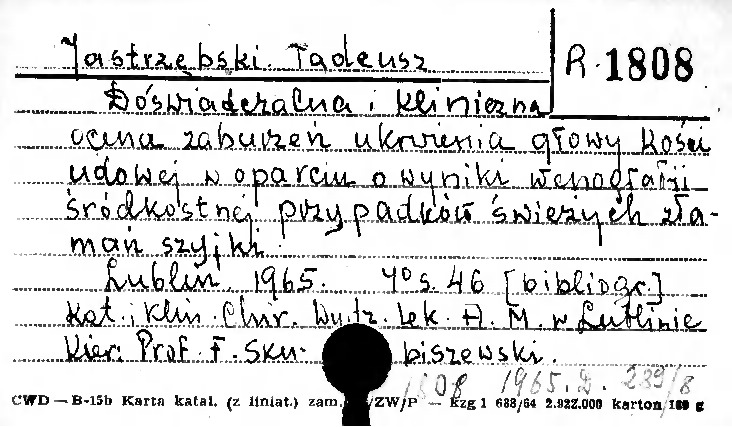 Jastrzębski Tadeusz
R. 1808
Doświadczalna i kliniczna
ocena zaburzeń ukrwienia głowy kości
udowej w oparciu o wyniki wenografii
śródkostnej przypadków świeżych zła-
mań szyjki.
Lublin 1965. 4° s. 46 [bibliogr.]
Kat. i Klin. Chir. Wydz. Lek. A. M. w Lublinie
Kier: Prof. F. Sku- biszewski.
1808 1965. D. 239/8
CWD — B-15b Karta katal. (z liniat.) zam. /ZW/P — Łzg 1 688/64 2.922.000 karton 180 g